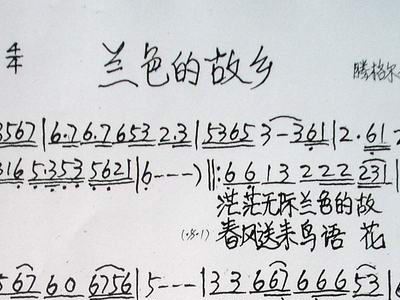 4/4 兰色的故乡 腾格尔
3567|6.7 6.7 653 2.3|5365 3-361|2.61 2
316 5.353 5621|6---)‖:6 6 1 3 2 2 2 231|
茫茫无际兰色的故
春风送来鸟语 花
5 67 6 0 6756|5---|3 3 667 6 6 6 53|6